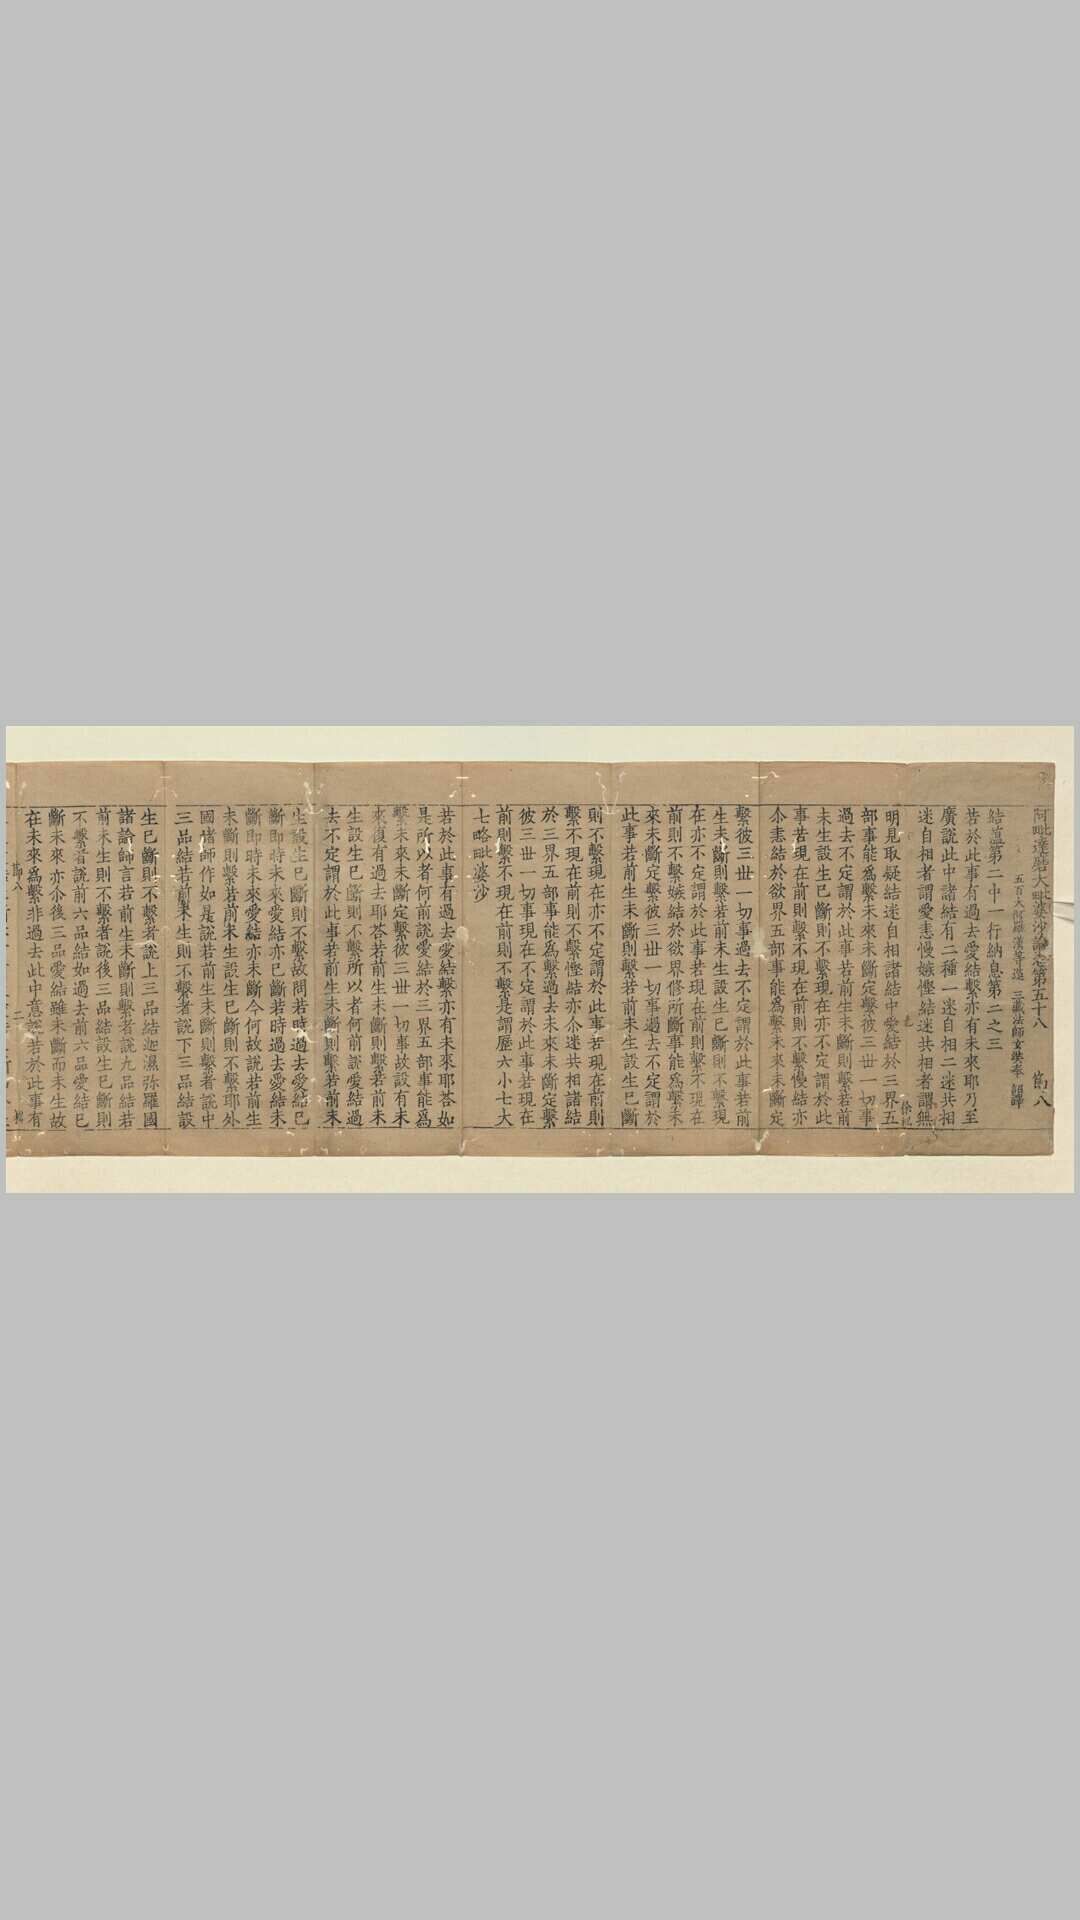 阿毗達磨大毗婆沙論卷第五十八 節八
五百大阿羅漢等造 三藏法師玄奘奉 詔譯
結蘊第二中一行納息第二之三
若於此事有過去愛結繫亦有未來耶乃至
廣說此中諸結有二種一迷自相二迷共相
迷自相者謂愛恚慢嫉慳結迷共相者謂無
明見取疑結迷自相諸結中愛結於三界五
部事能為繫未來未斷定繫彼三世一切事
過去不定謂於此事若前生未斷則繫若前
未生設生已斷則不繫現在亦不定謂於此
事若現在前則繫不現在前則不繫慢結亦
尒恚結於欲界五部事能為繫未來未斷定
繫彼三世一切事過去不定謂於此事若前
生未斷則繫若前未生設生已斷則不繫現
在亦不定謂於此事若現在前則繫不現在
前則不繫嫉結於欲界修所斷事能為繫未
來未斷定繫彼三世一切事過去不定謂於
此事若前生未斷則繫若前未生設生已斷
則不繫現在亦不定謂於此事若現在前則
繫不現在前則不繫慳結亦尒迷共相諸結
於三界五部事能為繫過去未來未斷定繫
彼三世一切事現在不定謂於此事若現在
前則繫不現在前則不繫是謂歷六小七大
七略毗婆沙
若於此事有過去愛結繫亦有未來耶荅如
是所以者何前說愛結於三界五部事能為
繫未來未斷定繫彼三世一切事故設有未
來復有過去耶荅若前生未斷則繫若前未
生設生已斷則不繫所以者何前說愛結過
去不定謂於此事若前生未斷則繫若前未
生設生已斷則不繫故問若時過去愛結已
斷即時未來愛結亦已斷若時過去愛結未
斷即時未來愛結亦未斷今何故說若前生
未斷則繫若前未生設生已斷則不繫耶外
國諸師作如是說若前生未斷則繫者說中
三品結若前未生則不繫者說下三品結設
生已斷則不繫者說上三品結迦濕弥羅國
諸論師言若前生未斷則繫者說九品結若
前未生則不繫者說後三品結設生已斷則
不繫者說前六品結如過去前六品愛結已
斷未來亦尒後三品愛結雖未斷而未生故
節八 二
在未來為繫非過去此中意說若於此事有